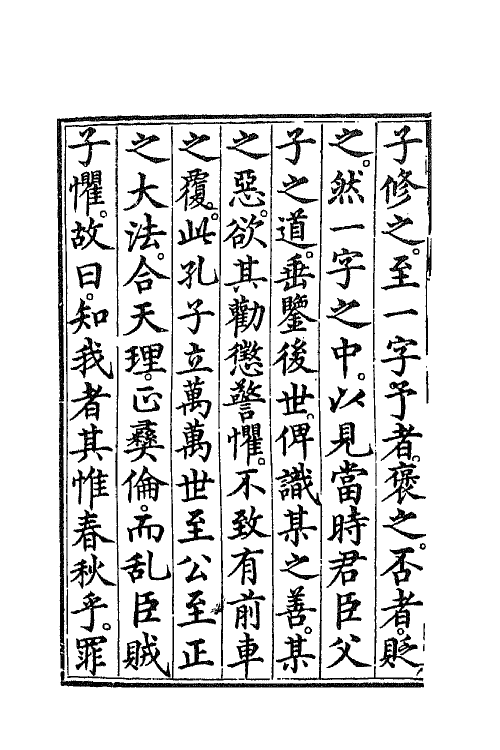 子修之。至一字予者。褒之。否者。貶
之。然一字之中。以見當時君臣父
子之道。垂鑒後世。俾識某之善。某
之惡。欲其勸懲警懼。不致有前車
之覆。此孔子立萬萬世至公至正
之大法。合天理。正彝倫。而乱臣賊
子懼。故曰。知我者其惟春秋乎。罪